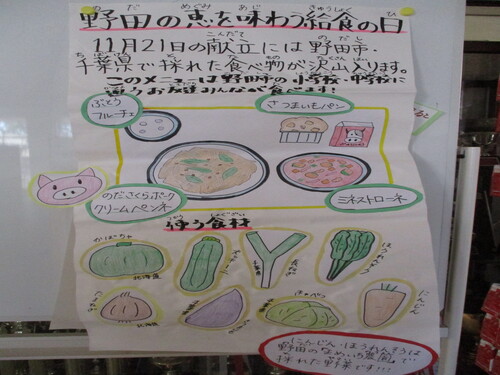 野田の恵を味わう給食の日
のだ めぐみ あじ きゅうしょく ひ
11月21日の献立には野田市・
こんだて のだし
千葉県で採れた食べ物が沢山入ります。
このメニューは野田市の小学校・中学校に
通うお友達みんなが食べます!
ぶどう
フルーチェ
さつまいもパン
のださくらポーク
クリームペンネ
ミネストローネ
使う食材
かぼちゃ
北海道
北海道
キャベツ
にんじん
にんじん・ほうれんそうは
野田のなめいち農園で
採れた野菜です!!!